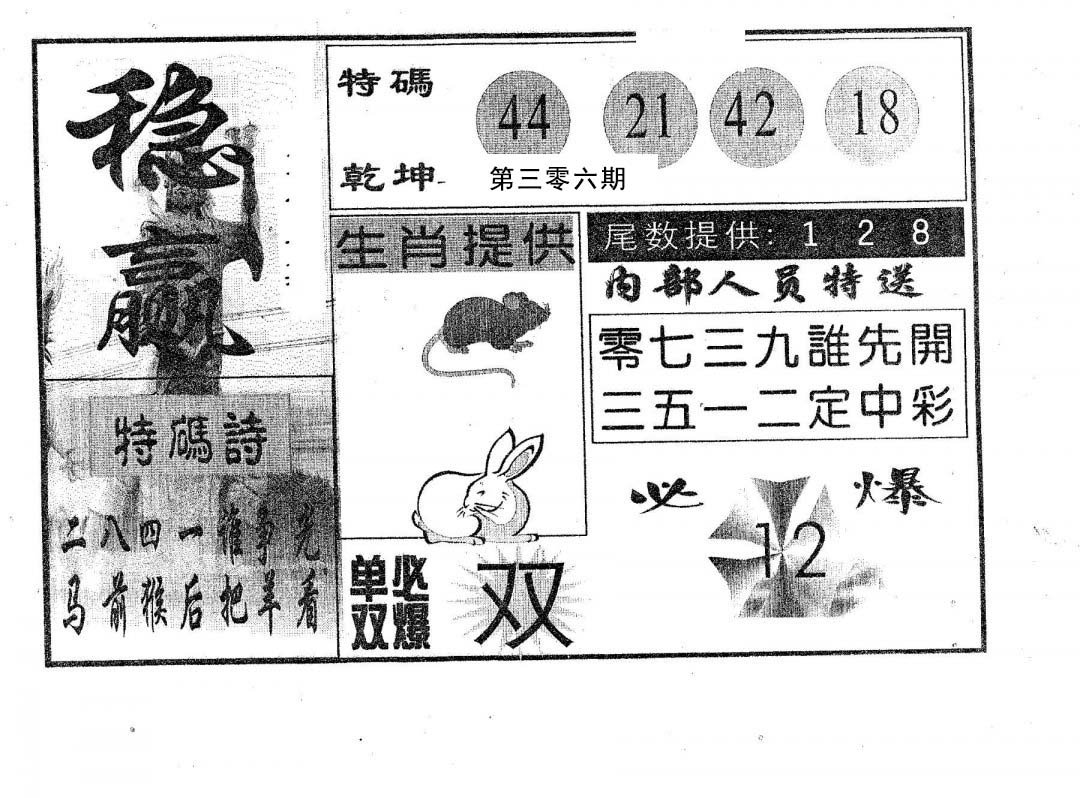 稳赢
特碼
44 21 42 18
乾坤
第三零六期
生肖提供
尾数提供：1 2 8
内部人员特送
零七三九誰先開
三五一二定中彩
特碼詩
二八四一誰争先
马前猴后把羊看
单双
必爆
双
必爆
12